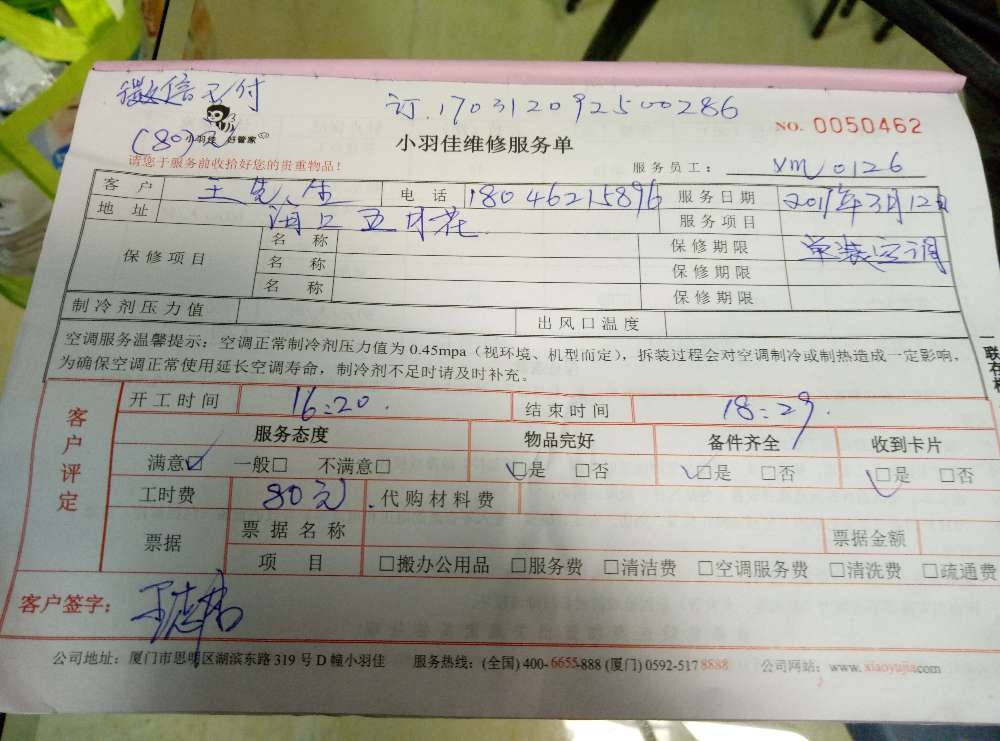 微信支付
(80)元
订.170312092500286
小羽佳 好管家
小羽佳维修服务单
NO. 0050462
请您于服务前收拾好您的贵重物品!
服务员工: XM 0126
客 户 王先生 电 话 18046215896 服务日期 2017年3月12日
地 址 海上五月花 服务项目 单装空调
保修项目 名 称 保修期限
名 称 保修期限
名 称 保修期限
制冷剂压力值 出风口温度
空调服务温馨提示:空调正常制冷剂压力值为 0.45mpa(视环境、机型而定),拆装过程会对空调制冷或制热造成一定影响,
为确保空调正常使用延长空调寿命,制冷剂不足时请及时补充。
客户评定
开工时间 16:20. 结束时间 18:29.
服务态度 物品完好 备件齐全 收到卡片
满意☑ 一般□ 不满意□ ☑是 □否 ☑是 □否 ☑是 □否
工时费 80元. 代购材料费
票据 票据名称 票据金额
项 目 □搬办公用品 □服务费 □清洁费 □空调服务费 □清洗费 □疏通费
客户签字:
公司地址:厦门市思明区湖滨东路 319 号 D 幢小羽佳 服务热线:(全国) 400-6655-888 (厦门) 0592-5178888 公司网站:www.xiaoyujia.com